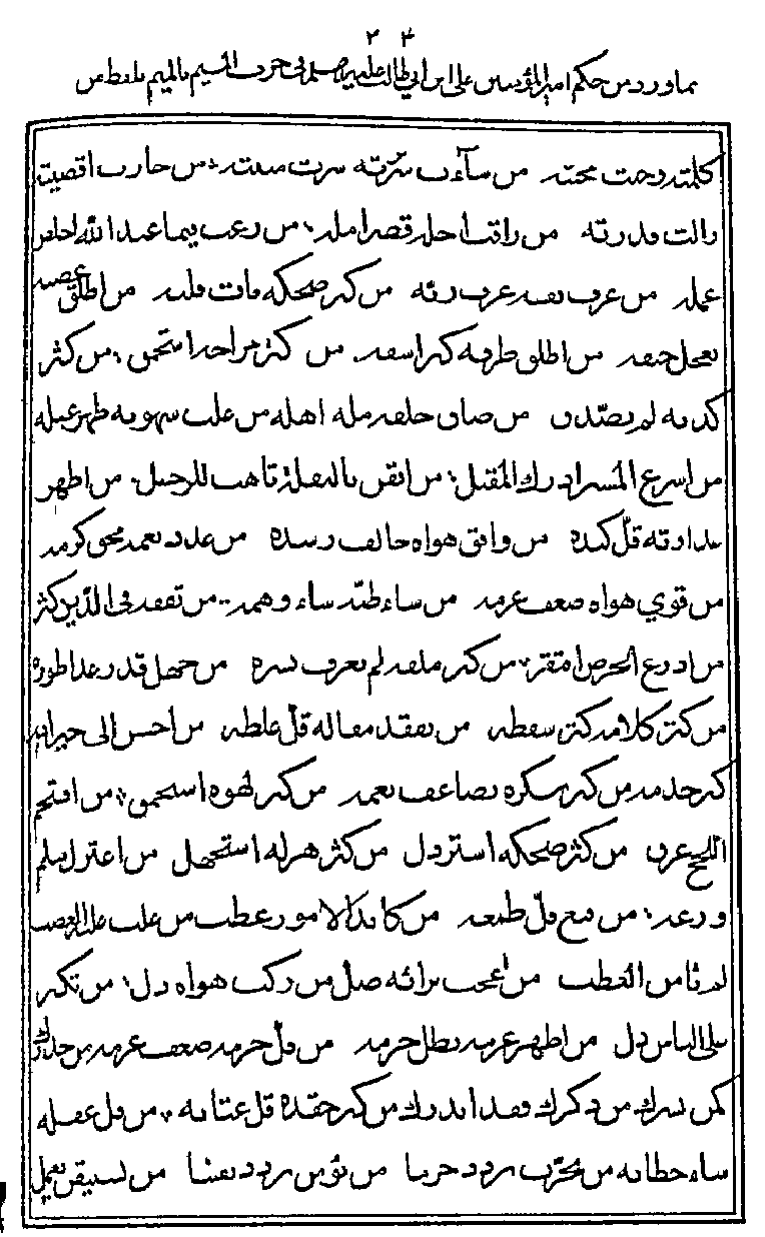 ٢٣
مما ورد من حكم امير المؤمنين علي ابن ابي طالب عليه في حرف الميم بالميم بلفظ من
كلمته وجبت محبته من ساءت سيرته سرت منيته من حارب اقصيته
زالت قدرته من راقب اجله قصر امله من رغب فيما عند الله اخلص
عمله من عرف نفسه عرف ربه من كثر ضحكه مات قلبه من اطلق غضبه
تعجل حتفه من اطلق طرفه كثر اسفه من كثر مزاحه استحمق من كثر
كذبه لم يصدق من ضاق خلقه مله اهله من غلب شهوته ظهر عقله
من اسرع المسير ادرك المقيل من ايقن بالنقلة تاهب للرحيل من اظهر
عداوته قل كيده من وافق هواه خالف رشده من عدد نعمه محق كرمه
من قوي هواه ضعف عزمه من ساء ظنه ساء وهمه من تفقه في الدين كثر
من ادرع الحرص افتقر من كثر ملقه لم يعرف بشره من جهل قدره عدا طوره
من كثر كلامه كثر سقطه من تفقد مقاله قل غلطه من احسن الى جيرانه
كثر خدمه من كثر شكره تضاعف نعمه من كثر لهوه استحمق من اقتحم
اللجج غرق من كثر ضحكه استرذل من كثر هزله استجهل من اعتزل سلم
ورعه من قنع قل طمعه من كابد الامور عطب من غلب عليه الغضب
لم يأمن العطب من اعجب برائه ضل من ركب هواه زل من تكبر
على الناس ذل من اظهر عزمه بطل حزمه من قل حزمه ضعف عزمه من حذرك
كمن بشرك من ذكرك فقد انذرك من كثر حقده قل عتابه من قل عقله
ساء خطابه من يجرب يزدد حزما من يؤمن يزدد يقينا من يستيقن يعمل